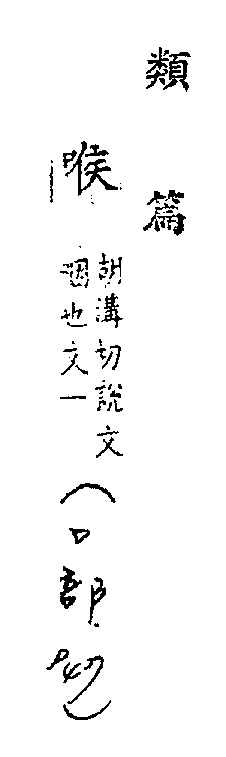 類篇
喉
胡溝切說文
咽也文一
(口部